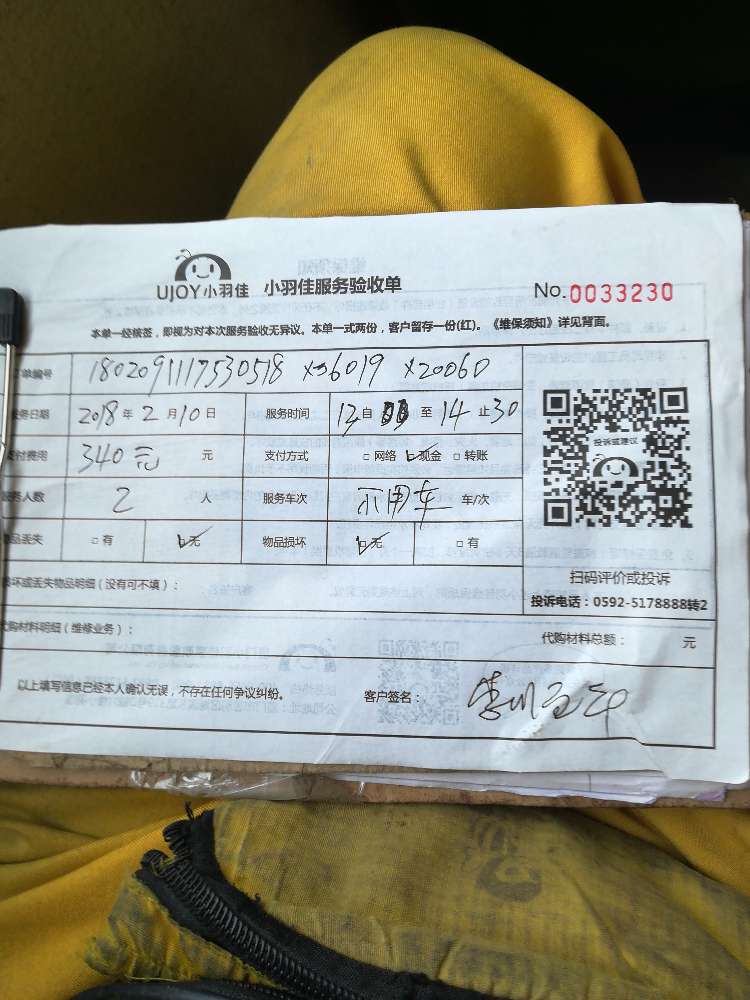 UJOY小羽佳 小羽佳服务验收单 No.0033230
本单一经核签，即视为对本次服务验收无异议。本单一式两份，客户留存一份(红)。《维保须知》详见背面。
订单编号 1802091117530518 x36019 x20060
服务日期 2018年2月10日 服务时间 12自 至14止30
支付费用 340元 元 支付方式 □网络 □现金 □转账
服务人数 2 人 服务车次 不用车 车/次
物品丢失 □有 □无 物品损坏 □无 □有
投诉或建议
扫码评价或投诉
投诉电话：0592-5178888转2
损坏或丢失物品明细（没有可不填）：
代购材料明细（维修业务）： 代购材料总额： 元
以上填写信息已经本人确认无误，不存在任何争议纠纷。 客户签名：